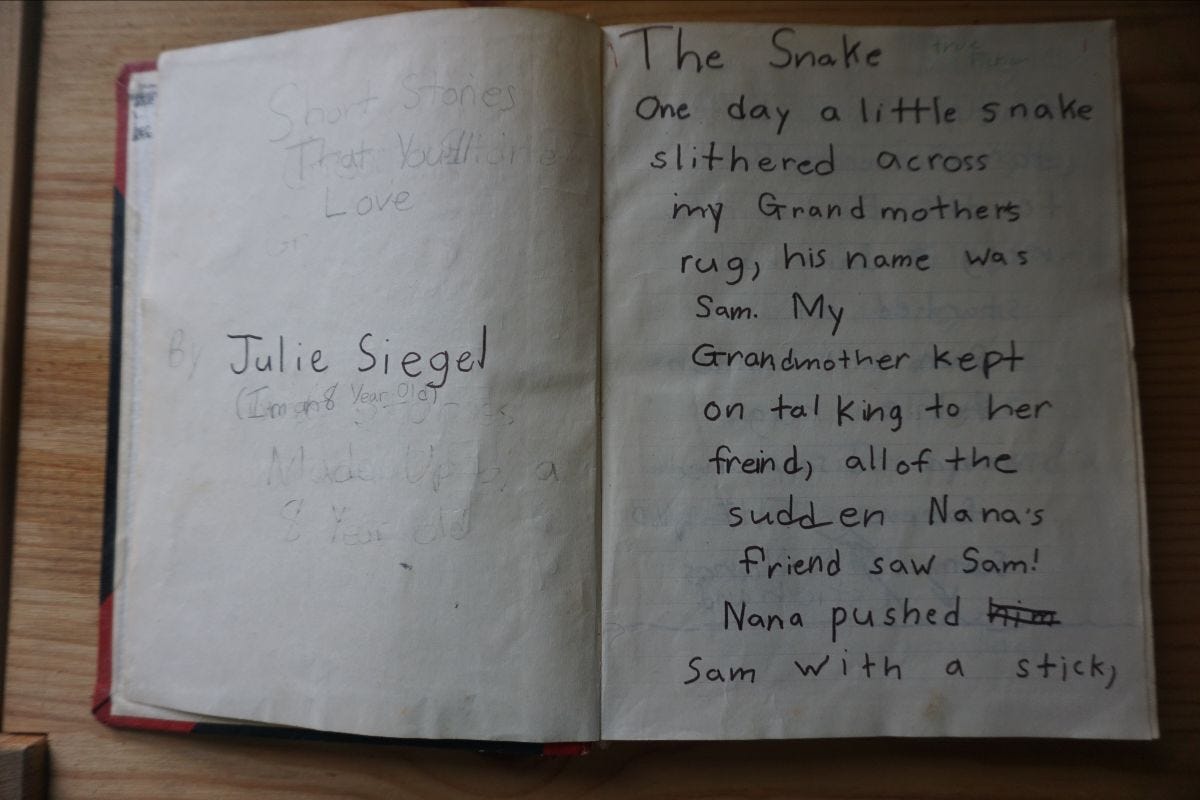 Short Stories
That You
Love
or
By Julie Siegel
(I'm an 8 Year Old)
Made Up by a
8 Year old
The Snake
One day a little snake
slithered across
my Grandmothers
rug, his name was
Sam. My
Grandmother kept
on talking to her
freind, all of the
sudden Nana's
friend saw Sam!
Nana pushed him
Sam with a stick,